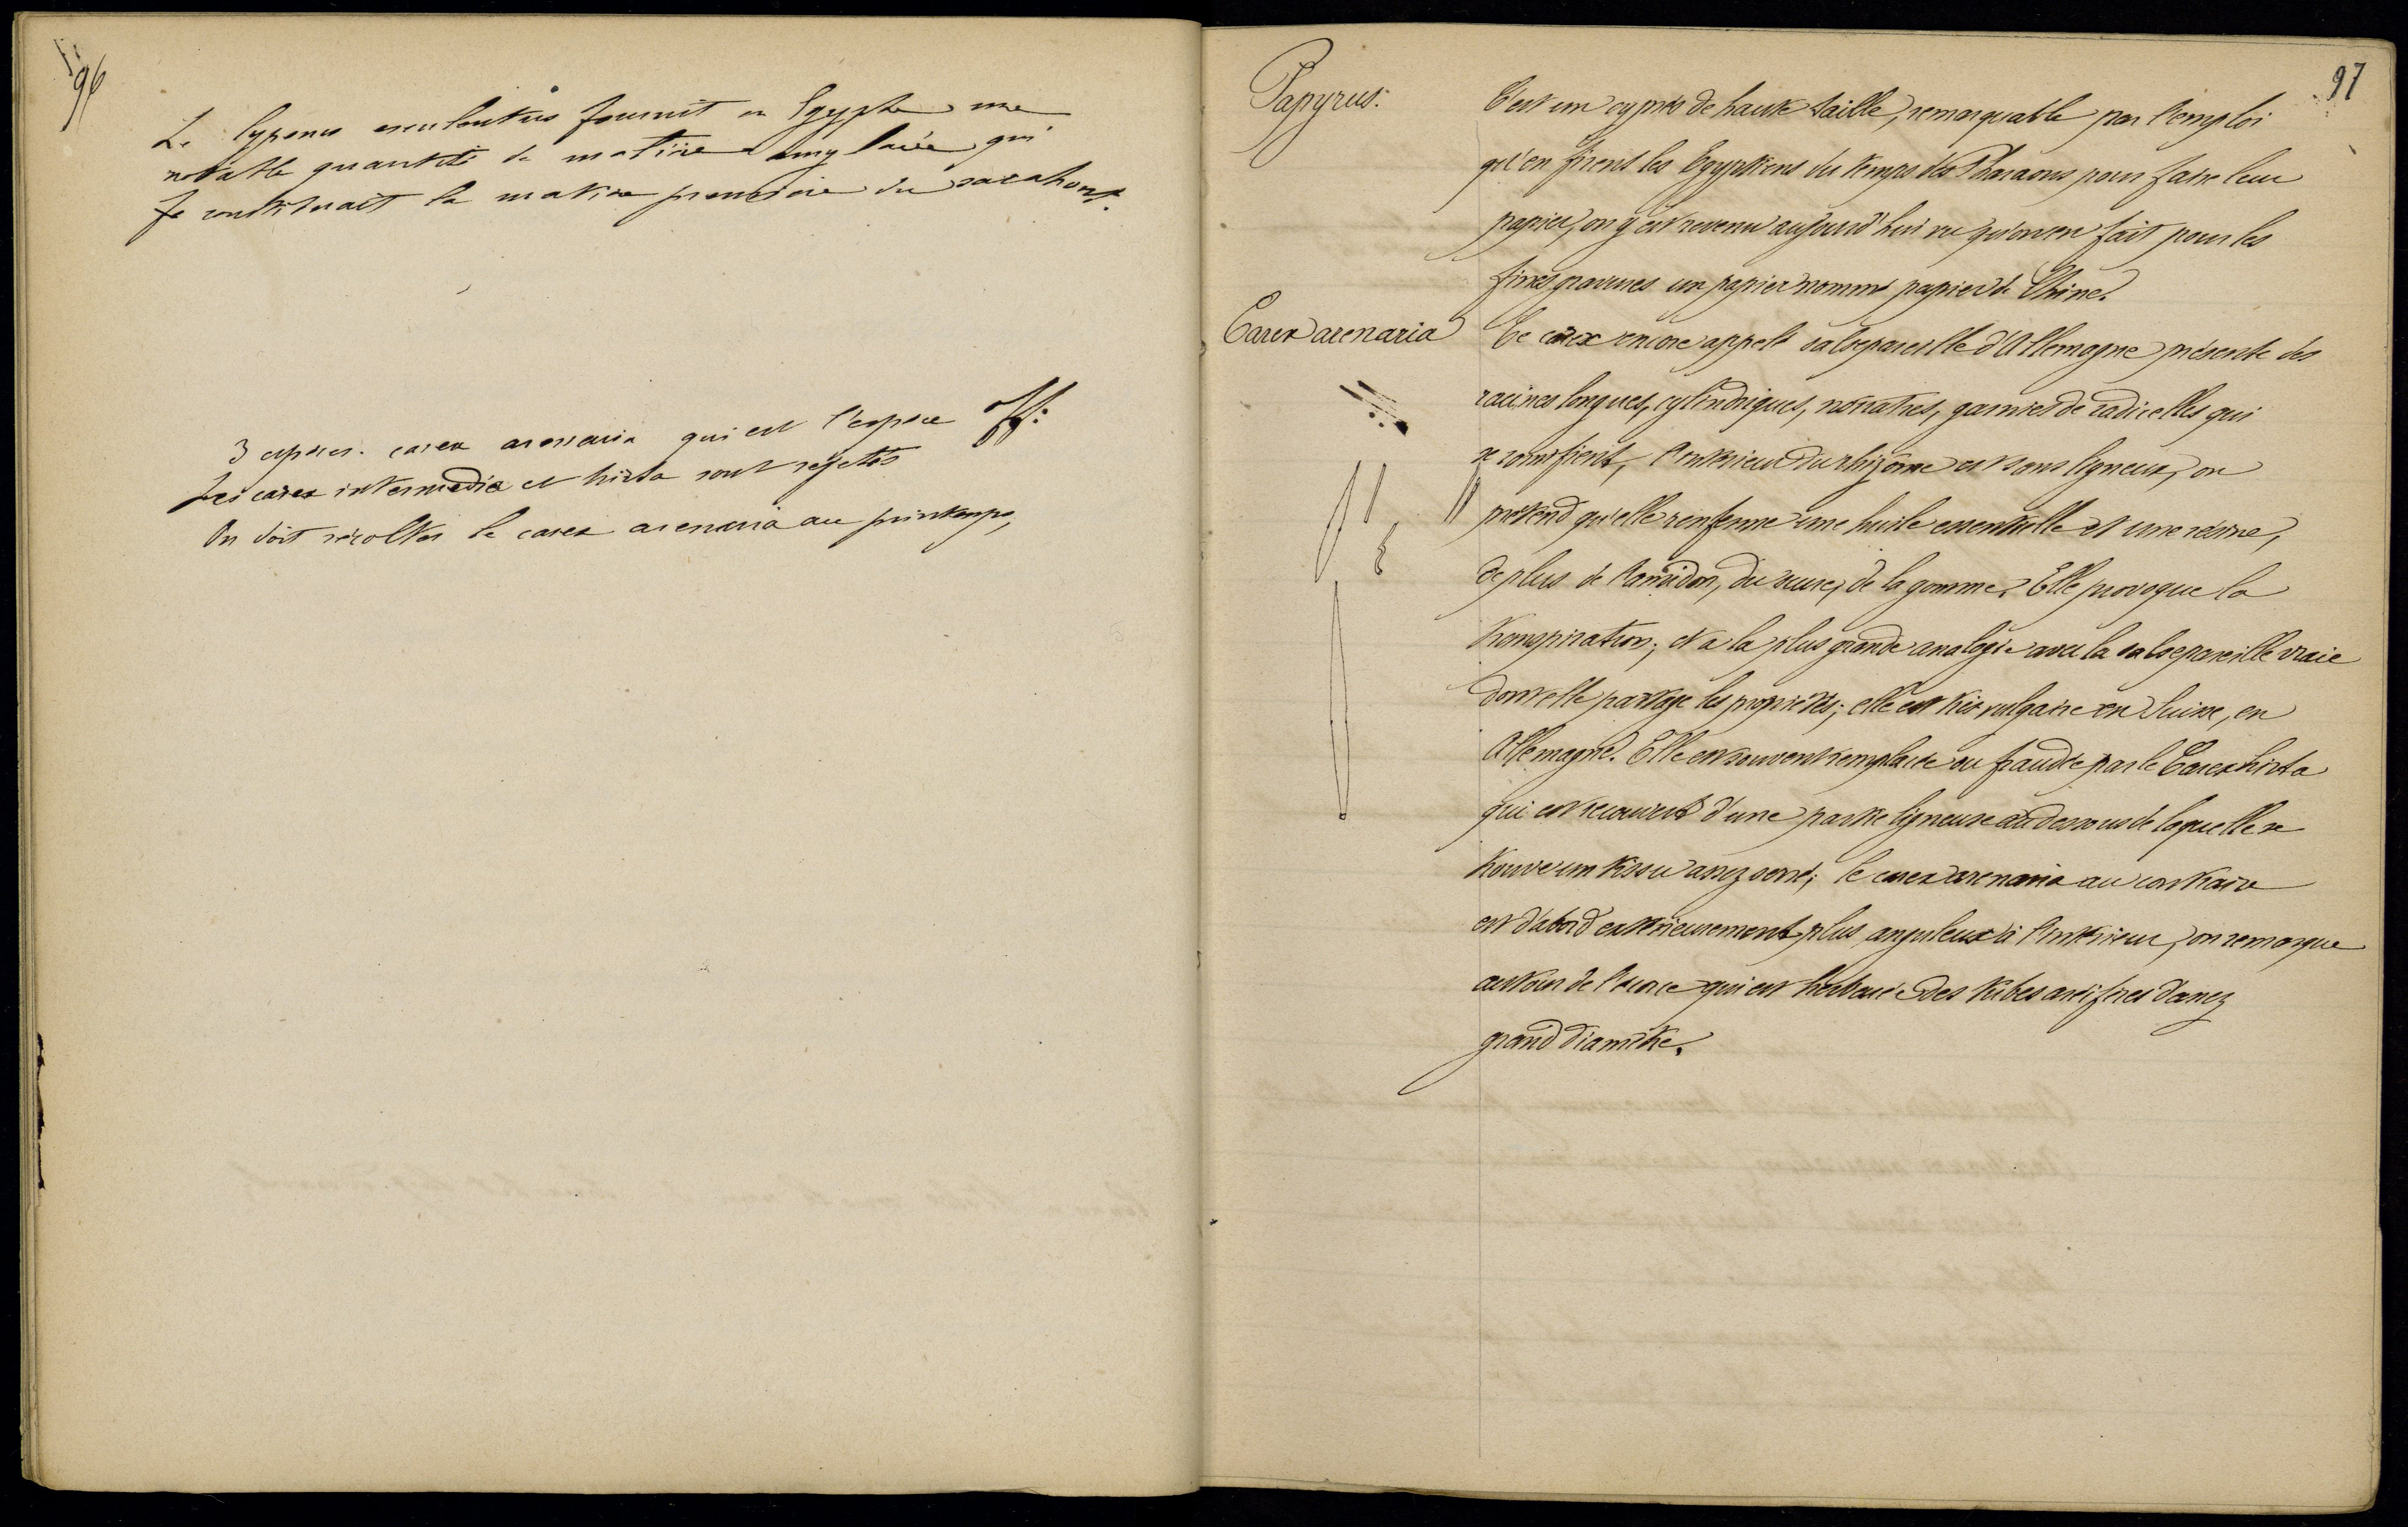 96
Le Cyperus esculentus fournit en Egypte une
notable quantité de matière amylacée qui
constituait la matière première du racahout.
3 espèces. carex arenaria qui est l'espèce off:
Les carex intermedia et hirta sont rejetés
On doit récolter le carex arenaria au printemps,
97
Papyrus.
C'est un cyprès de haute taille, remarquable par l'emploi
qu'en firent les Egyptiens du temps des Pharaons pour faire leur
papier, on y est revenu aujourd'hui vu qu'on en fait pour les
fines gravures un papier nommé papier de Chine.
Carex arenaria
Ce carex encore appelé salsepareille d'Allemagne présente des
racines longues, cylindriques, noirâtres, garnies de radicelles qui
se ramifient, l'intérieur du rhizôme est sans ligneux, on
prétend qu'elle renferme une huile essentielle et une résine,
de plus de l'amidon, du sucre, de la gomme. Elle provoque la
transpiration; et a la plus grande analogie avec la salsepareille vraie
dont elle partage les propriétés; elle est très vulgaire en Suisse, en
Allemagne. Elle est souvent remplacée ou fraudée par le Carex hirta
qui est recouvert d'une partie ligneuse au dessous de laquelle se
trouve un tissu assez serré; le carex arenaria au contraire
est d'abord extérieurement plus anguleux à l'intérieur, on remarque
autour de l'écorce qui est herbacée des tubes aérifères d'assez
grand diamètre.